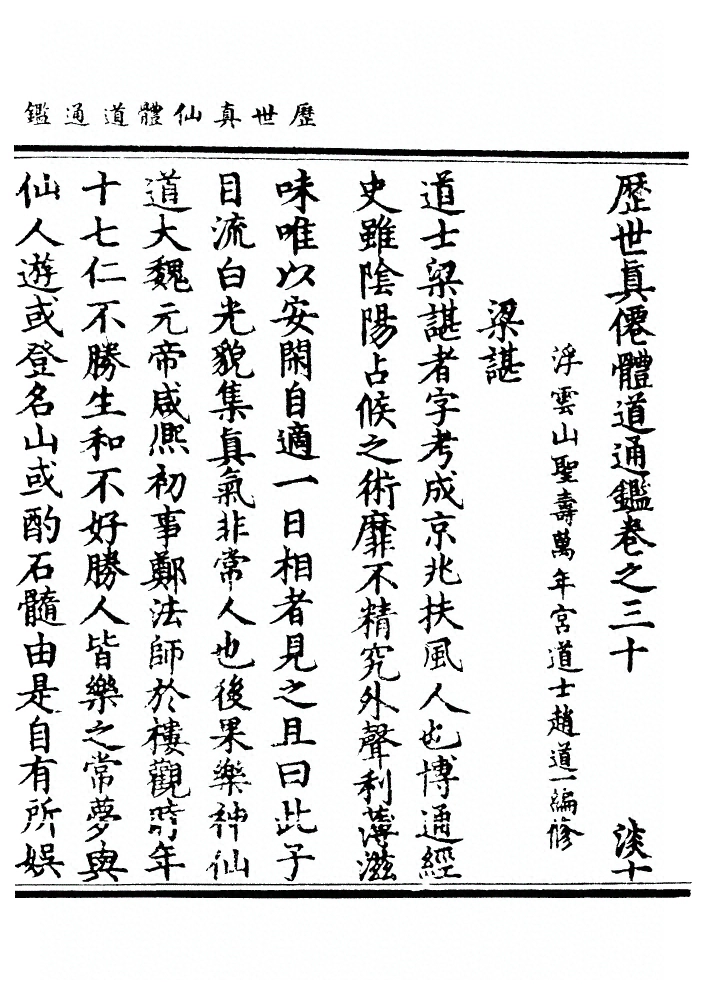 歷世真仙體道通鑑
歷世眞僊體道通鑑卷之三十 淡十
浮雲山聖壽萬年宮道士趙道一編修
梁諶
道士梁諶者字考成京兆扶風人也博通經
史雖陰陽占候之術靡不精究外聲利薄滋
味唯以安閑自適一日相者見之且曰此子
目流白光貌集眞氣非常人也後果樂神仙
道大魏元帝咸熈初事鄭法師於樓觀時年
十七仁不勝生和不好勝人皆樂之常夢與
仙人遊或登名山或酌石髓由是自有所娛